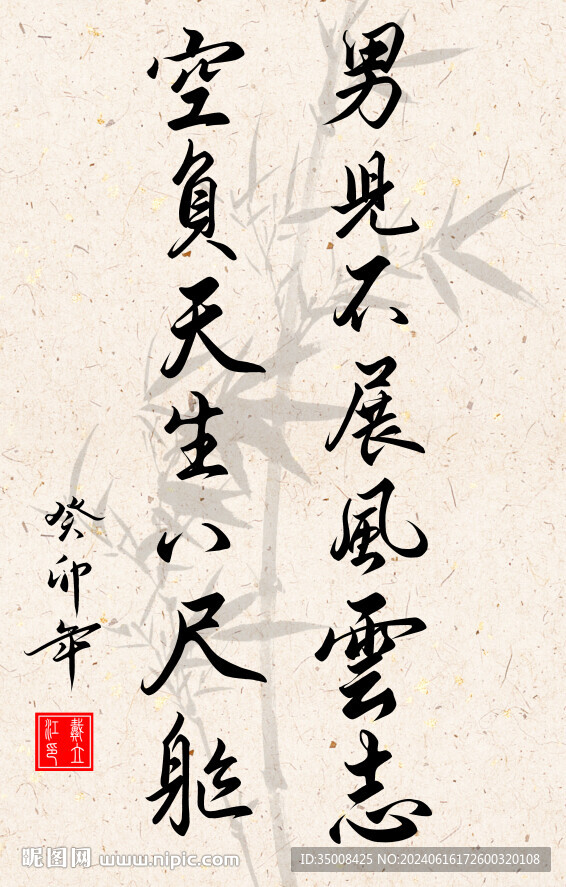 男兒不展風雲志
空負天生八尺軀
癸卯年
戴立
江印
昵图网 www.nipic.com
ID:35008425 NO:20240616172600320108